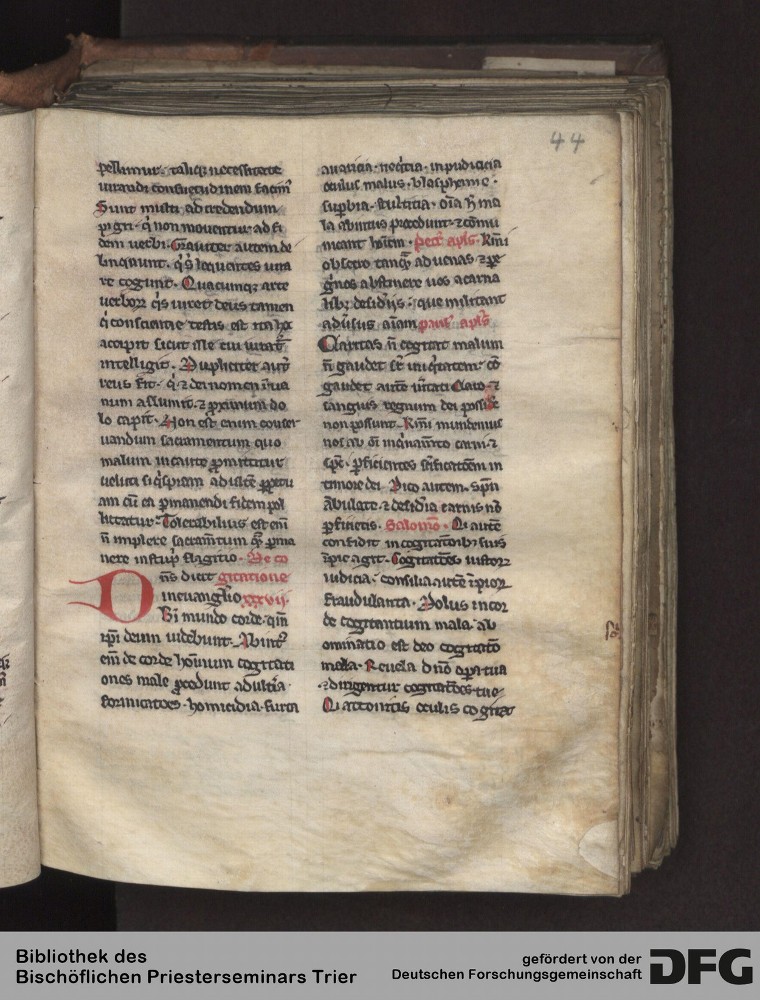 44
pellimur. taliq; necessitate
iurandi consuetudinem facim9
Sunt multi ad credendum
pigri. q̇ non mouentur ad fi
dem uerbi. Grauiter autem de
linquunt. q̇ s̄ loquentes iura
re cogunt. Quacunq; arte
uerborꝝ q̇s iuret deus tamen
q̇ conscientie testis est ita hoc
accipit sicut ille cui iuratᷣ
intelligit. Dupliciter autē
reus fit. q̇ ⁊ dei nomen in ua
num assumit. ⁊ proximum do
lo capit. Non est enim conser
uandum sacramentum quo
malum incaute promittitur
ueluti si q̇spiam adultere ppetu
am cū ea pmanendi fidem pol
liceatur. Tolerabilius est em̄
n̄ implere sacram̄tum q̄ꝫ pma
nere in stupri flagitio. De co
Dn̄s dicit gitatione
in euanglio xxxvii.
Bt̄i mundo corde. qm̄
ipi deum uidebunt. Ab int9
em̄ de corde hoīnum cogitati
ones male procedunt adultia.
fornicatōes. homicidia. furta
auaricia. neqtia. inpudicicia
oculus malus. blasphemie.
supbia. stultitia. oīa h̄ ma
la abintus procedunt. ⁊ cōmu
nicant hoīem. Petr9 apls. Kmī
obsecro tanq̄ꝫ aduenas ⁊ pe
g̓nos abstinere uos a carna
lib; desid̓iis. que militant
adūsus aīam paul9 apls
Caritas n̄ cogitat malum
n̄ gaudet sr̄ iniq̇tatem. cō
gaudet autē uītati Caro. ⁊
sanguis regnum dei posside
non possunt. Kmī mundemus
nos ab oī inq̇namto carnis. ⁊
spc̄. pficientes scificatōem in
timore dei. Dico autem. spū
ābulate. ⁊ desid̓ia carnis nō
pficietis. Salomō. Qi autē
confidit in cogitatōnib; suis
īpie agit. Cogitatōes iustorꝝ
iudicia. consilia autē īpiorꝝ
fraudulenta. Dolus in cor
de cogitantium mala. ab
ominatio est deo cogitatō
mala. Reuela dn̄o opa tua
⁊ dirigentur cogitatōes tue
Qi attonitis oculis cogitat
Bibliothek des
Bischöflichen Priesterseminars Trier
gefördert von der
Deutschen Forschungsgemeinschaft
DFG